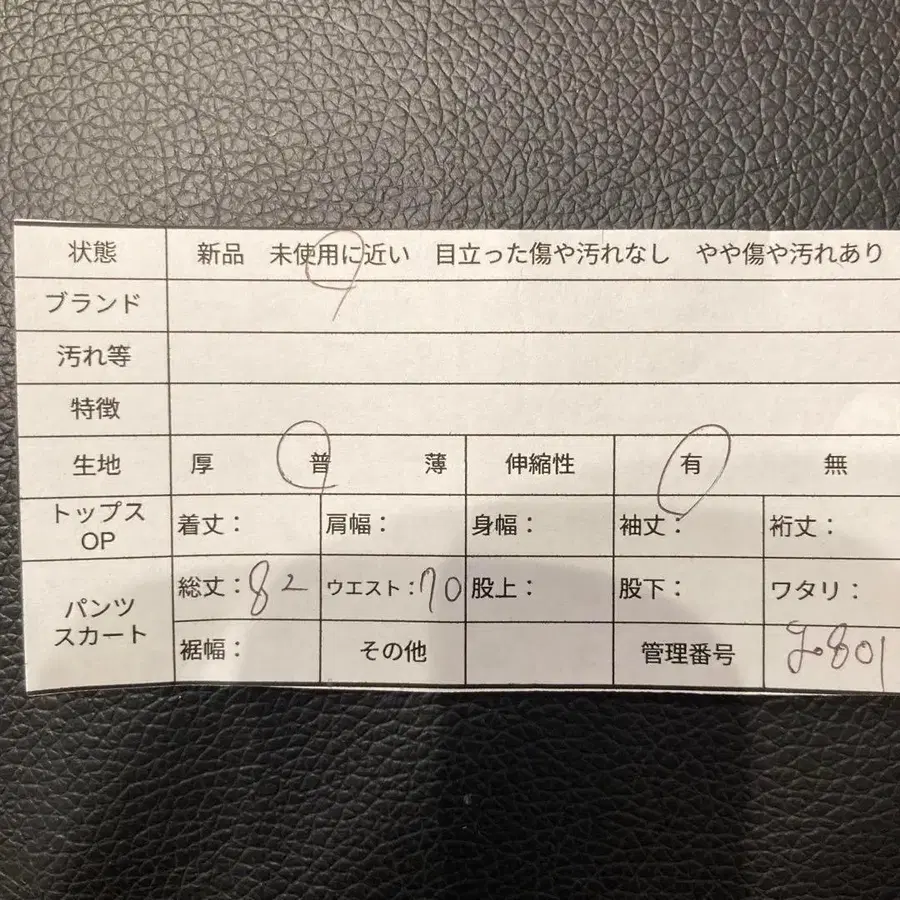 状態 新品 未使用に近い 目立った傷や汚れなし やや傷や汚れあり
ブランド
汚れ等
特徴
生地 厚 普 薄 伸縮性 有 無
トップス OP 着丈： 肩幅： 身幅： 袖丈： 裄丈：
パンツ スカート 総丈：82 ウエスト：70 股上： 股下： ワタリ：
裾幅： その他 管理番号 801